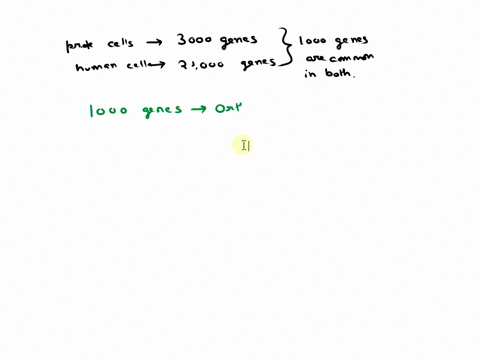 prok cells → 3000 genes } 1000 genes
human cell → 21,000 genes are common
in both.
1000 genes → Ort